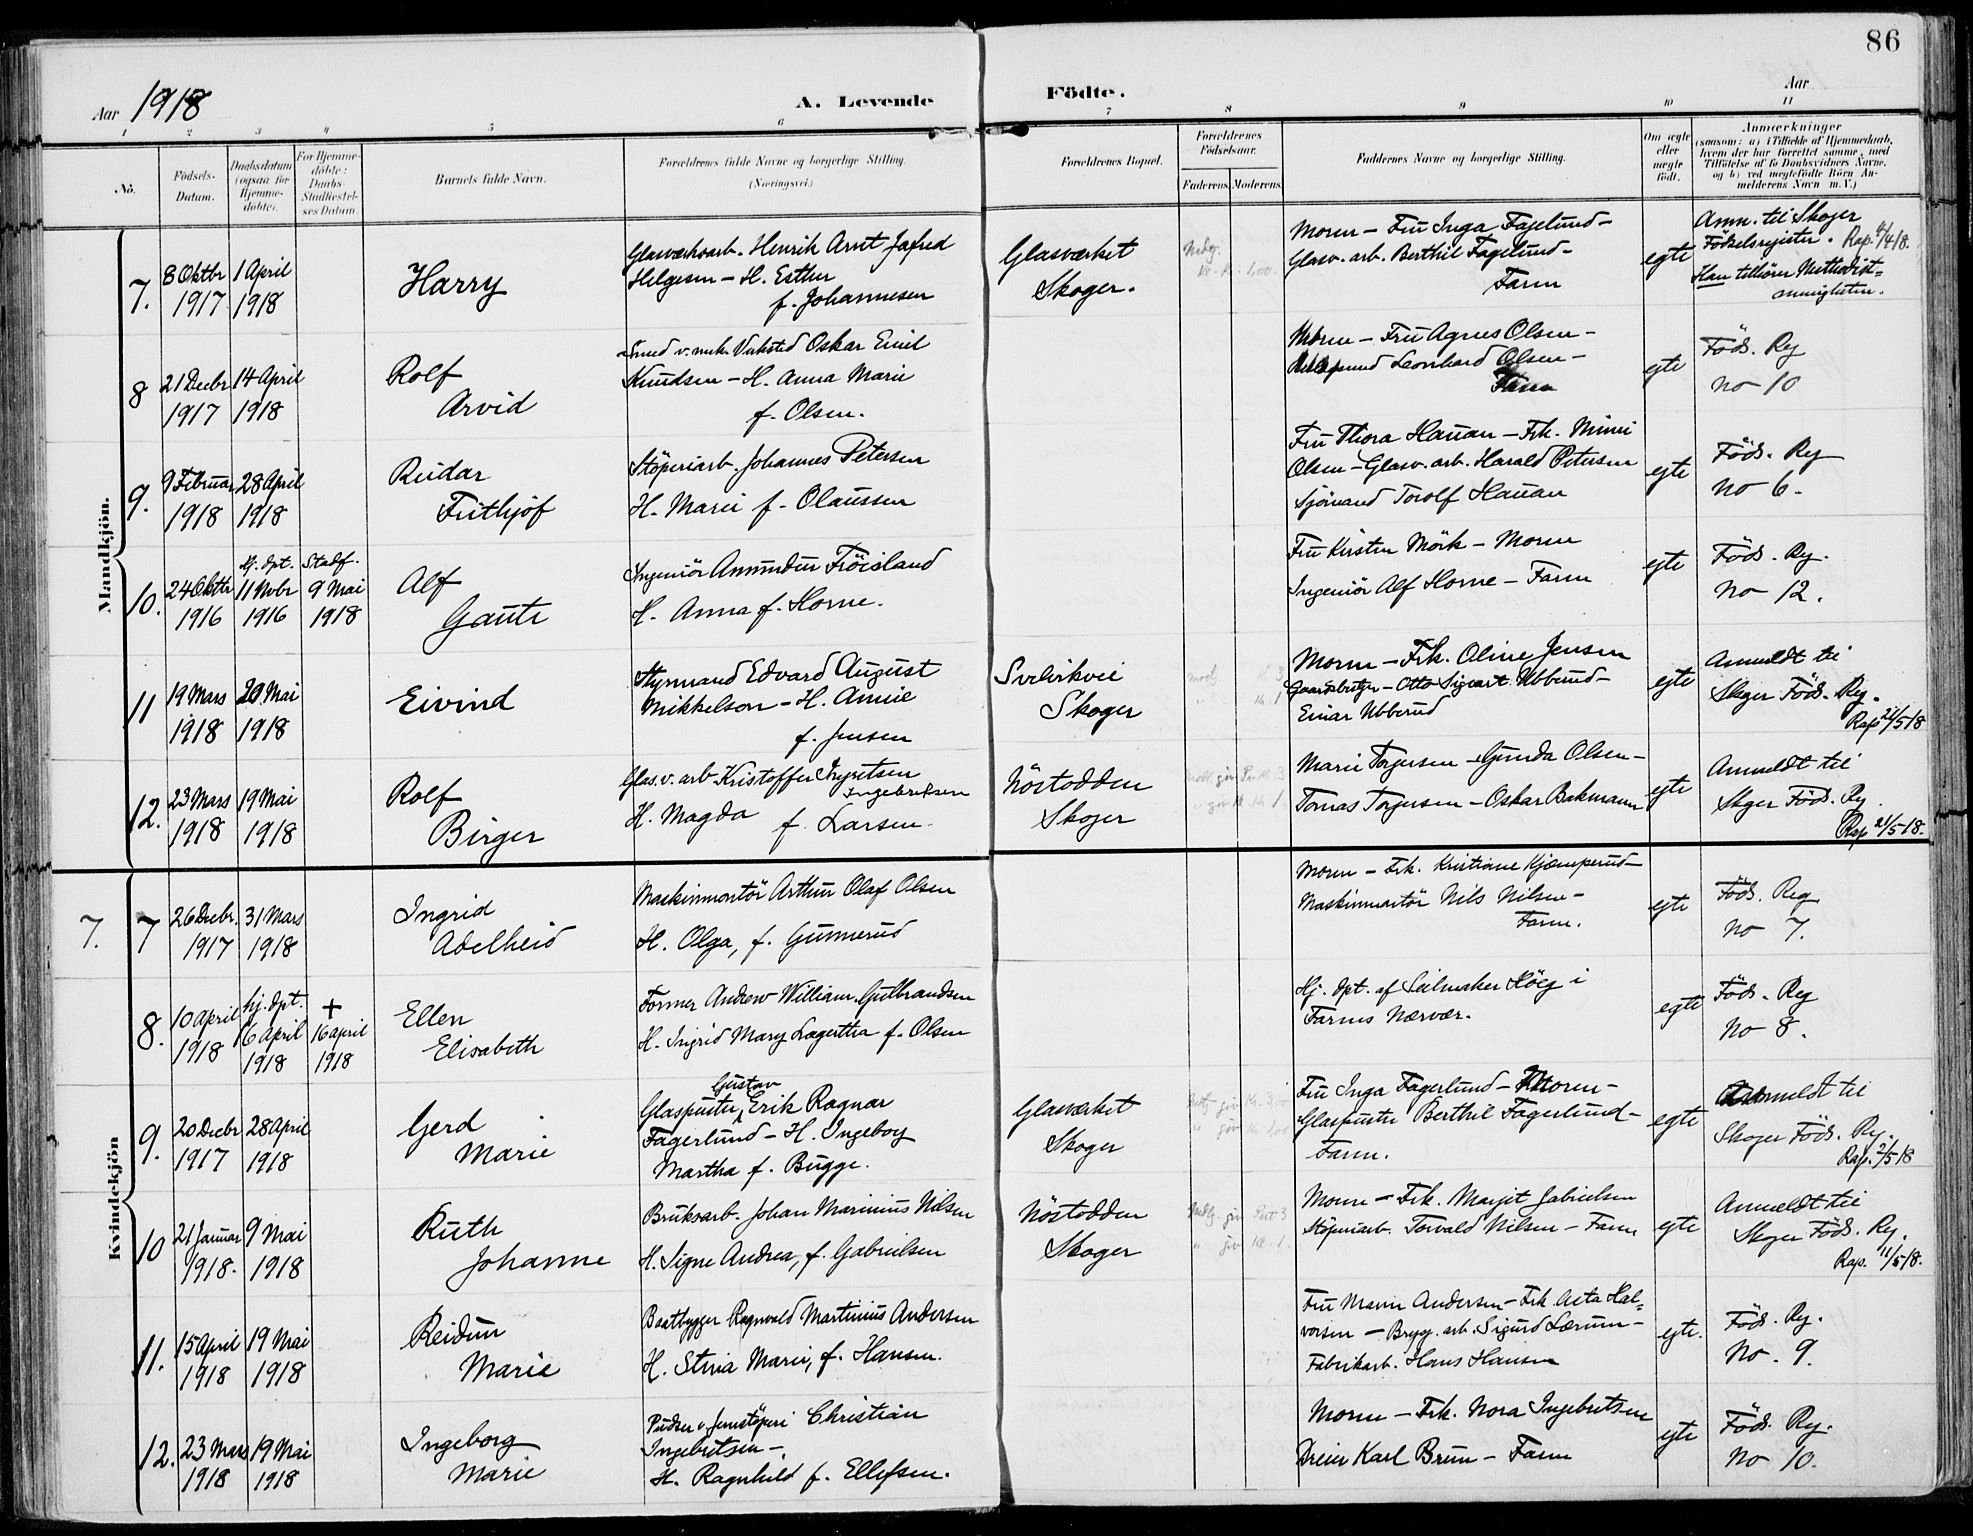 86
Aar 1918
A. Levende Födte.
Aar
1 2 3 4 5 6 7 8 9 10 11
No.
Födsels-Datum.
Daabsdatum (ogsaa for Hjemme-döbte).
For Hjemme-döbte: Daabs-Stadfæstel-ses Datum.
Barnets fulde Navn.
Forældrenes fulde Navne og borgerlige Stilling. (Næringsvei.)
Forældrenes Bopæl.
Forældrenes Födselsaar.
Faderens. Moderens.
Faddernes Navne og borgerlige Stilling.
Om ægte eller uægte födt.
Anmærkninger
(saasom: a) i Tilfælde af Hjemmedaab, hvem der har forrettet samme, med Tilföielse af to Daabsvidners Navne, og b) ved uegtefödte Börn An-melderens Navn m. V.)
Mandkjön.
7. 8 Oktbr 1917
1 April 1918
Harry
Glasværksarb. Henrik Arnt Jafred
Helgesen - H. Esther
f. Johannesen
Glasværket
Skoger.
Moren - Fru Inga Fagelund -
Glasv. arb. Berthil Fagelund -
Faren
egte
Anm. til Skoger
Födselsregister. Rap. 4/4 18.
Han tilhörer Methodist=
menigheten.
8 21 Decbr 1917
14 April 1918
Rolf
Arvid
Smed v. mek. Verksted Oskar Emil
Knudsen - H. Anna Marie
f. Olsen.
Moren - Fru Agnes Olsen -
Leonhard Olsen -
Faren
egte
Föds. Reg
no 10
9. 9 Februar 1918
28 April 1918
Reidar
Frithjof
Stöperiarb. Johannes Petersen
H. Marie f. Olaussen
Fru Thora Hauan - Frk. Mimi
Olsen - Glasv. arb. Harald Petersen
Sjömand Torolf Hauan
egte
Föds. Reg
no 6.
10. 24 Oktbr 1916
Hj. dpt. 11 Novbr 1916
Stadf. 9 Mai 1918
Alf
Gaute
Ingeniör Amundur Fröisland
H. Anna f. Horne.
Fru Kirsten Mörk - Moren
Ingeniör Alf Horne - Faren
egte
Föds. Reg.
no 12.
11 19 Mars 1918
20 Mai 1918
Eivind
Styrmand Edvard August
Mikkelson - H. Annie
f. Jensen
Svelvikvei
Skoger
Moren - Frk. Oline Jensen
Gaardbruger - Otto Sigvart Ubberud -
Einar Ubberud
egte
Anmeldt til
Skoger Föds. Reg.
Rap 21/5 18
12. 23 Mars 1918
19 Mai 1918
Rolf
Birger
Glas.v. arb Kristoffer
Ingebretsen
H. Magda f. Larsen.
Nöstodden
Skoger
Marie Torgersen - Gunda Olsen -
Tomas Torgersen - Oskar Bakmann
egte
Anmeldt til
Skger Föds. Reg.
Rap 21/5 18.
Kvindekjön
7. 7 26 Decbr. 1917
31 Mars 1918
Ingrid
Adelheid
Maskinmontör Arthur Olaf Olsen
H. Olga, f. Gunnerud
Moren - Frk. Kristiane Kjæmperud -
Maskinmontör Nils Nilsen -
Faren.
egte
Föds. Reg
no 7.
8. 10 April 1918
hj. dpt. 16 April 1918
+ 16 april 1918
Ellen
Elisabeth
Former Andrew William Gulbrandsen
H. Ingrid Mary Lagertha f. Olsen
Hj. dpt. af Seilmaker Höeg i
Farens Nærvær.
egte
Föds. Reg
No 8.
9. 20 Decbr 1917
28 April 1918
Gerd
Marie
Gustav
Glaspuster, Erik Ragnar
Fagerlund - H. Ingeborg
Martha f. Bugge.
Glasværket
Skoger
Fru Inga Fagerlund - Moren -
Glaspuster Berthil Fagerlund -
Faren.
egte
Anmeldt til
Skoger Föds. Reg.
Rap. 2/5 18
10 21 Januar 1918.
9 Mai 1918
Ruth
Johanne
Bruksarb. Johan Marinius Nilsen
H. Signe Andrea, f. Gabrielsen
Nöstodden
Skoger
Moren - Frk. Margit Gabrielsen
Stöperiarb. Torvald Nilsen - Faren
egte
Anmeldt til
Skoger Föds. Reg.
Rap. 11/5 18.
11. 15 April 1918
19 Mai 1918
Reidun
Marie
Baatbygger Ragnvald Martinius Andersen
H. Stina Marie, f. Hansen.
Fru Maren Andersen - Frk. Asta Hal=
vorsen - Brygg. arb. Sigurd Lærum -
Fabrikarb. Hans Hansen
egte.
Föds. Reg.
No. 9.
12. 23 Mars 1918
19 Mai 1918
Ingeborg
Marie
Pudser v. Jernstöperi Christian
Ingebretsen -
H. Ragnhild f. Ellefsen.
Moren - Frk. Nora Ingebretsen
Dreier Karl Brun - Faren
egte
Föds. Reg.
No 10.